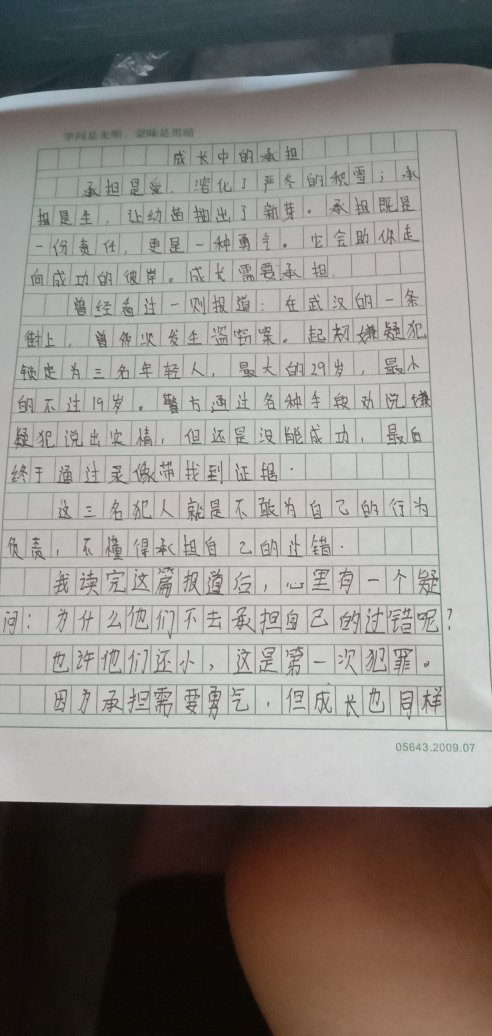 学问是光明，蒙昧是黑暗
成长中的承担
承担是爱，溶化了严冬的积雪；承
担是生，让幼苗抽出了新芽。承担既是
一份责任，更是一种勇气。它会助你走
向成功的彼岸。成长需要承担.
曾经看过一则报道：在武汉的一条
街上，曾多次发生盗窃案。起初嫌疑犯
锁定为三名年轻人，最大的29岁，最小
的不过19岁。警方通过各种手段劝说嫌
疑犯说出实情，但还是没能成功，最后
终于通过录像带找到证据.
这三名犯人就是不敢为自己的行为
负责，不懂得承担自己的过错.
我读完这篇报道后，心里有一个疑
问：为什么他们不去承担自己的过错呢？
也许他们还小，这是第一次犯罪。
因为承担需要勇气，但成长也同样
05643.2009.07